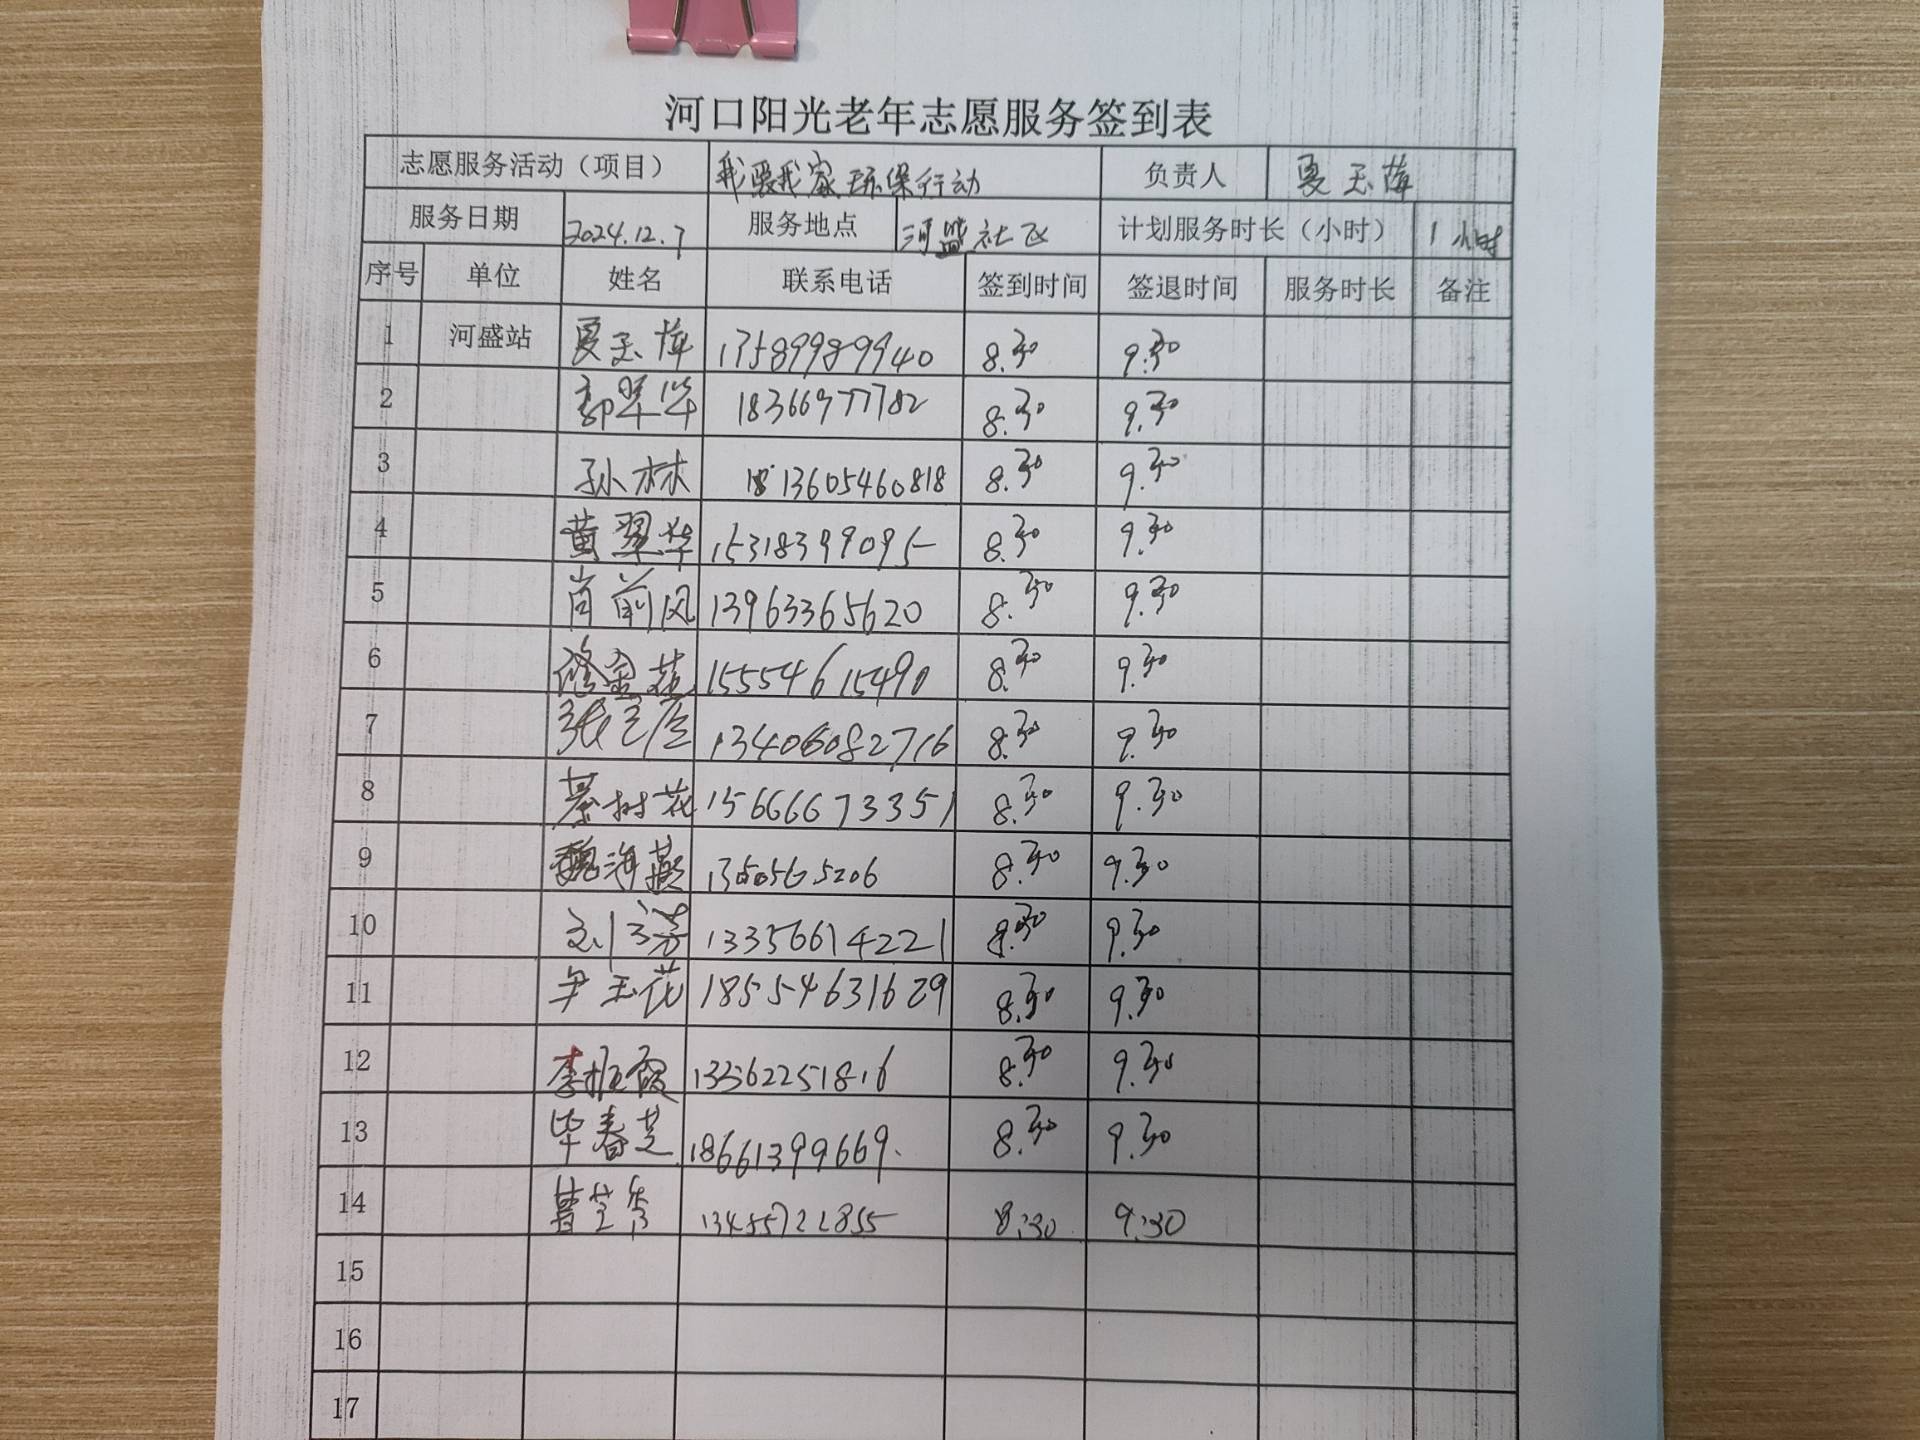 河口阳光老年志愿服务签到表
志愿服务活动（项目） 我要我家环保行动 负责人 夏玉梅
服务日期 2024.12.7 服务地点 河盛社区 计划服务时长（小时） 1小时
序号 单位 姓名 联系电话 签到时间 签退时间 服务时长 备注
1 河盛站 夏玉梅 17589989940 8.30 9.30
2 郭翠华 18366977782 8.30 9.30
3 孙林 13605460818 8.30 9.30
4 黄翠华 15318399095 8.30 9.30
5 肖前风 13963365620 8.30 9.30
6 15554615490 8.30 9.30
7 13406082716 8.30 9.30
8 綦树花 15666673351 8.30 9.30
9 魏海燕 8.30 9.30
10 13356614221 8.30 9.30
11 尹玉花 18554631629 8.30 9.30
12 13362251816 8.30 9.30
13 毕春芝 18661399669. 8.30 9.30
14 曹芝秀 13455721855 8:30 9:30
15
16
17